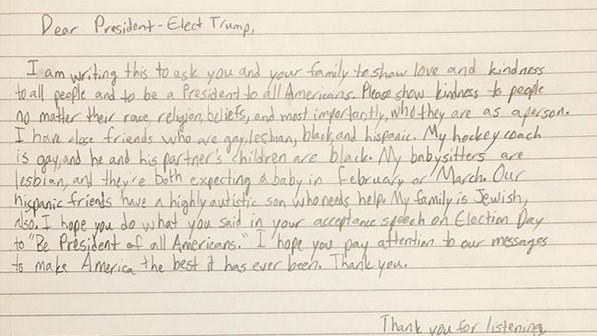 Dear President-Elect Trump,
I am writing this to ask you and your family to show love and kindness
to all people and to be a President to all Americans. Please show kindness to people
no matter their race, religion, beliefs, and most importantly, who they are as a person.
I have close friends who are gay, lesbian, black, and hispanic. My hockey coach
is gay, and he and his partner's children are black. My babysitters are
lesbian, and they're both expecting a baby in February or March. Our
hispanic friends have a highly autistic son who needs help. My family is Jewish,
also. I hope you do what you said in your acceptance speech on Election Day
to "Be President of all Americans." I hope you pay attention to our messages
to make America the best it has ever been. Thank you.
Thank you for listening